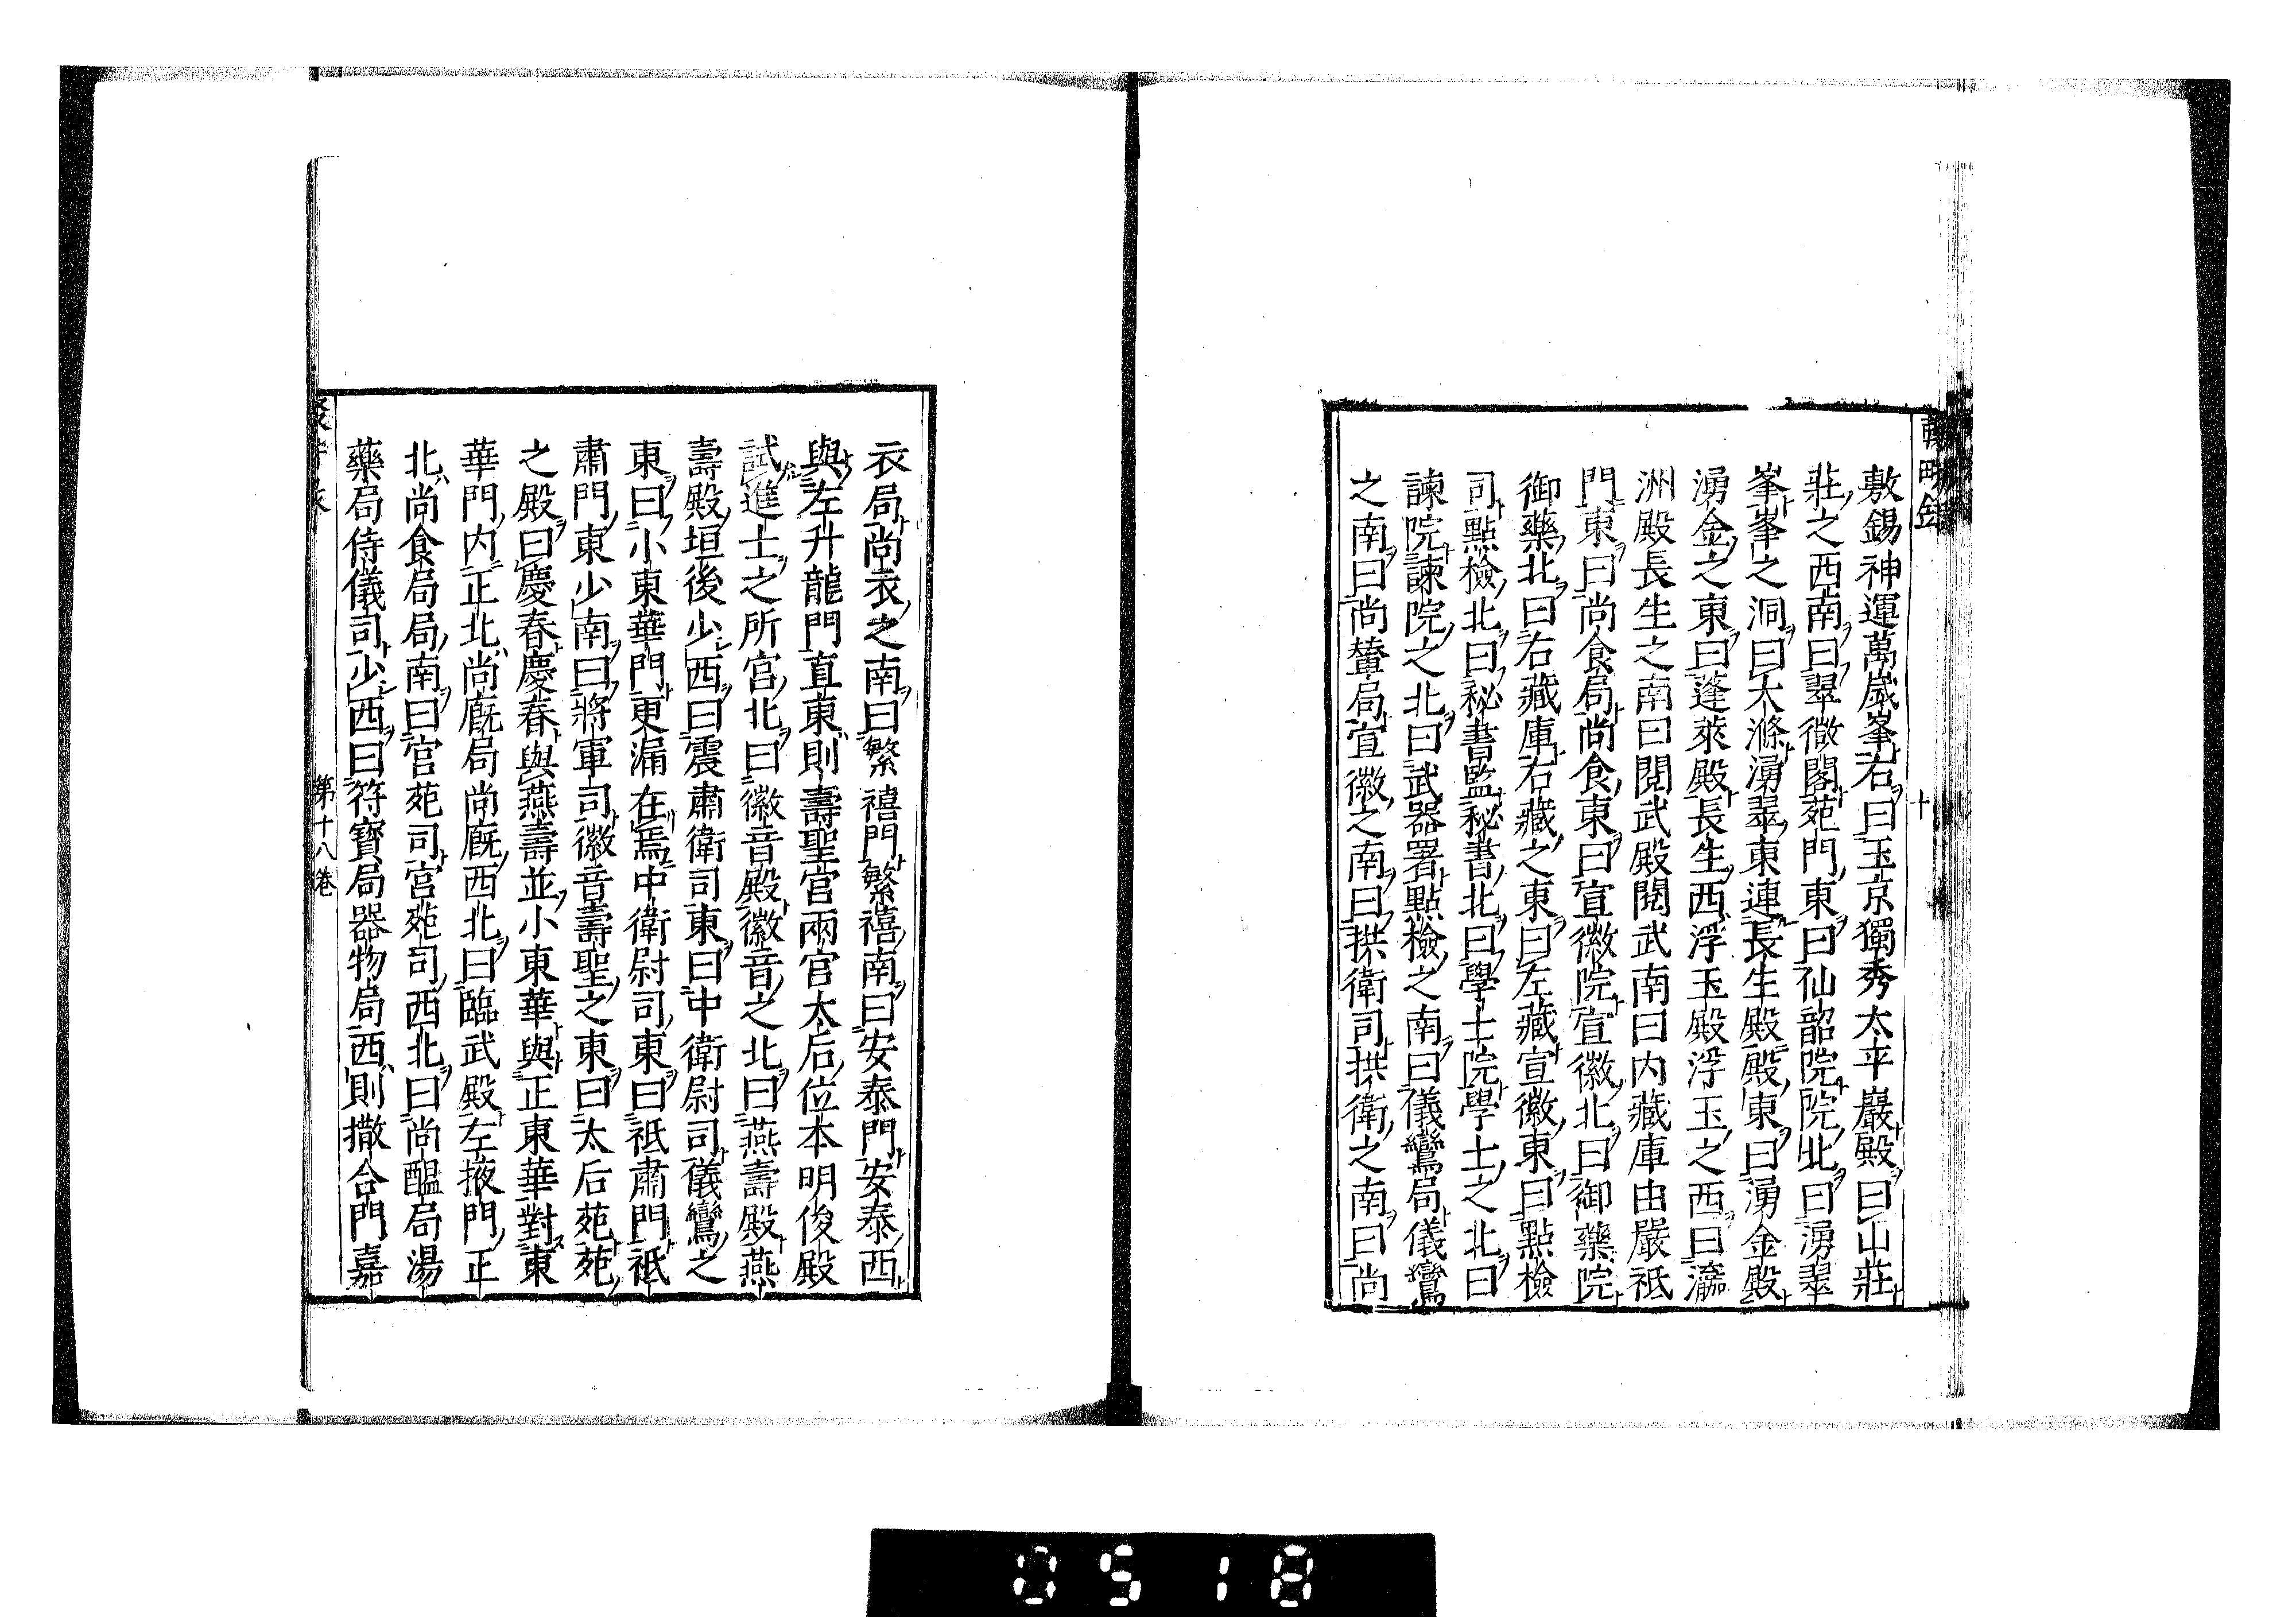 敷錫神運萬歳峯右曰玉京獨秀太平巖殿曰山莊
莊之西南曰翠微閣苑門東曰仙韶院院北曰湧翠
峯峯之洞曰大滌湧翠東連長生殿殿東曰湧金殿
湧金之東曰蓬萊殿長生西浮玉殿浮玉之西曰瀛
洲殿長生之南曰閱武殿閱武南曰内藏庫由嚴祗
門東曰尚食局尚食東曰宣徽院宣徽北曰御藥院
御藥北曰右藏庫右藏之東曰左藏宣徽東曰點檢
司點檢北曰秘書監秘書北曰學士院學士之北曰
諫院諫院之北曰武器署點檢之南曰儀鸞局儀鸞
之南曰尚輦局宣徽之南曰拱衛司拱衛之南曰尚
十
衣局尚衣之南曰繁禧門繁禧南曰安泰門安泰西
與左升龍門直東則壽聖宫兩宫太后位本明俊殿
試進士之所宫北曰徽音殿徽音之北曰燕壽殿燕
壽殿垣後少西曰震肅衛司東曰中衛尉司儀鸞之
東曰小東華門更漏在焉中衛尉司東曰祗肅門祗
肅門東少南曰將軍司徽音壽聖之東曰太后苑苑
之殿曰慶春慶春與燕壽並小東華與正東華對東
華門内正北尚廐局尚廐西北曰臨武殿左掖門正
北尚食局局南曰宫苑司宫苑司西北曰尚醖局湯
藥局侍儀司少西曰符寶局器物局西則撒合門嘉
第十八巻
0518